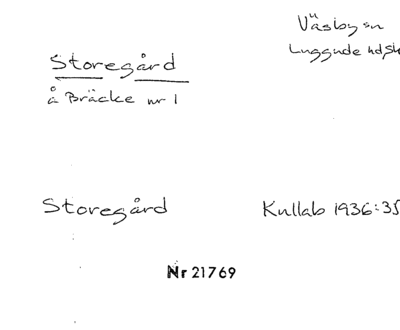 Väsby sn
Luggude hd, Sk
Storegård
å Bräcke nr 1
Storegård
Kullab 1936:35
Nr 21769